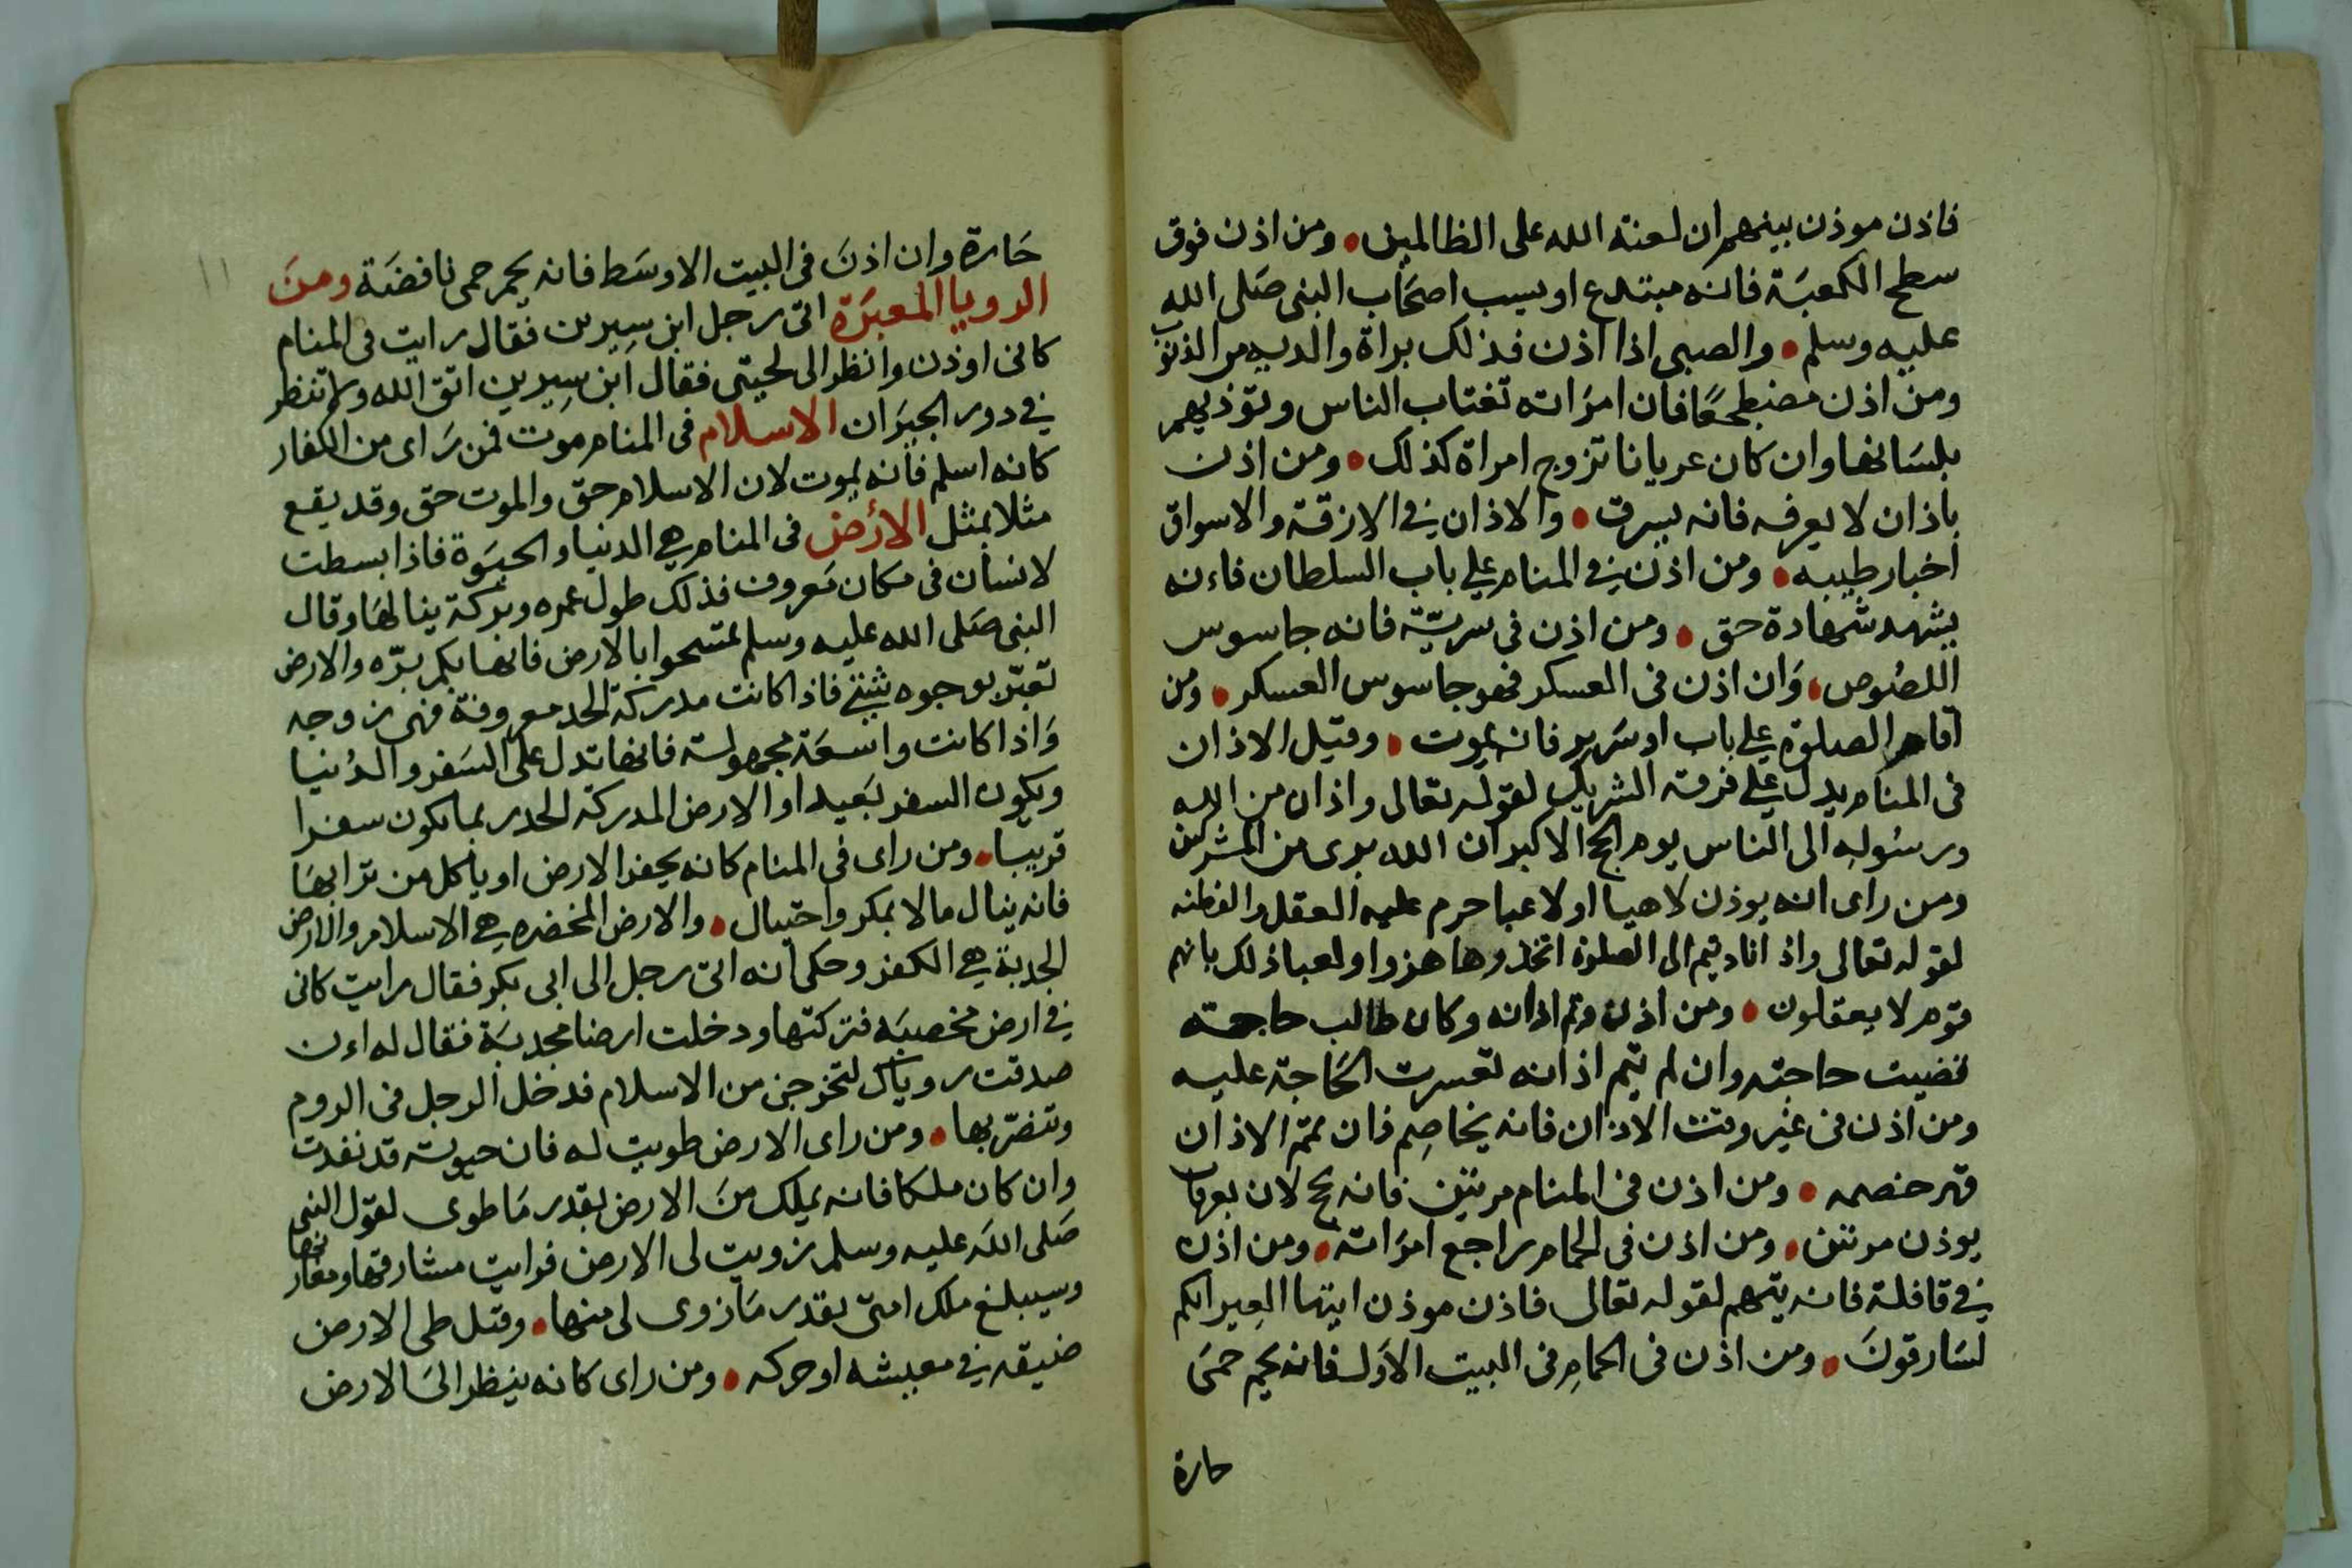 فاذن موذن بينهم ان لعنة الله على الظالمين ومن اذن فوق
سطح الكعبَة فانه مبتدع او يسب اصحَاب النبى صَلى الله
عليه وسلم والصبى اذا اذن فذلك براة والديه من الذنوب
ومن اذن مضطجعًا فان امرَاته تغتاب الناس وتوذيهم
بلسَانها وان كان عريانا تزوج امراة كذلك ومن اذن
باذان لا يعرفه فانه يسرق والاذان في الازقة والاسواق
اخبار طيبه ومن اذن في المنام علي باب السلطان فاءنه
يشهد شهادة حق ومن اذن فى سريّة فانه جاسوس
اللصُوص وَان اذن فى العسكر فهو جاسوس العسكر ومن
اقام الصلوة علي باب او سَرير فانه يموت وقيل الاذان
فى المنام يدل علي فرقة الشريك لقوله تعالى واذان من الله
ورسُوله الى الناس يوم الحج الاكبر ان الله برى من المشركين
ومن راى انه يوذن لاهيا او لاعبا حرم عليه العقل والفطنه
لقوله تعالى واذا ناديتم الى الصلوة اتخذوها هزوا ولعبا ذلك بانهم
قوم لا يعقلون ومن اذن وتم اذانه وكان طالب حاجته
قضيت حاجته وان لم يتم اذانه تعسرت الحَاجة عليه
ومن اذن فى غير وقت الاذان فانه يخاصِم فان تمّم الاذان
قهر خصمه ومن اذن فى المنام مرتين فانه يحج لان بعرفات
يوذن مرتين ومن اذن فى الحمام راجع امرَاته ومن اذن
في قافلة فانه يتهم لقوله تعالى فاذن موذن ايتها العِير انكم
لسَارقونَ ومن اذن فى الحمامِ فى البيت الاوَل فانه يحم حمىَ
حارة
١١
حَارة وان اذنَ فى البيت الاوسَط فانه يحم حمى نافضَة ومنَ
الرويا المعبَرَة اتى رجل ابن سِيرين فقال رايت فى المنام
كانى اوذن وانظر الى لحيتى فقال ابن سِيرين اتق الله ولا تنظر
في دور الجيرَان الاسلام فى المنام موت فمن رَاى من الكفار
كانه اسلم فانه يموت لان الاسلام حق والموت حق وقد يقع
مثلا بمثل الأرض فى المنام هي الدنيا والحيَوة فاذا بسطت
لانسان فى مكان مَعروف فذلك طول عمره وبركة ينالهَا وقال
النبى صَلى الله عليه وسلم تمسحوا بالارض فانها بكم برّه والارض
تعبّر بوجوه شتي فاذا كانت مدركة الحد معروفة فهى زوجه
وَاذا كانت واسعَة مجهولة فانها تدل على السَفر والدُنيا
ويكون السفر بَعيد او الارض المدركة الحد ربما يكون سفرا
قريبا ومن راى فى المنام كانه يحفر الارض او ياكل من ترابهَا
فانه ينال مالا بمكر واحتيال والارض المخضره هي الاسلام والارض
الجدبة هي الكفر وحكى انه اتى رجل الى ابى بكر فقال رايت كانى
في ارض مخصبَه فتركتها ودخلت ارضا مجدبَة فقال له اءن
صدقت روياك لتخرجن من الاسلام فدخل الرجل فى الروم
وتنصّر بها ومن راى الارض طويت له فان حيوته قد نفدت
وان كان ملكا فانه يملك منَ الارض بقدر مَا طوى لقول النبى
صَلى الله عليه وسلم زويت لى الارض فرايت مشارقها ومغاربها
وسيبلغ ملك امتى بقدر مَا زوى لى منها وقيل طى الارض
ضيقه في معيشه او حركه ومن راى كانه ينظر الىَ الارض